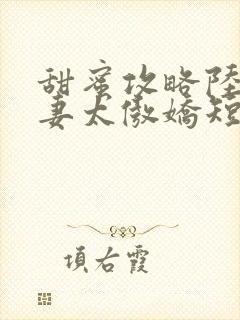 甜蜜攻略陸
妻太傲嬌短
項右霞